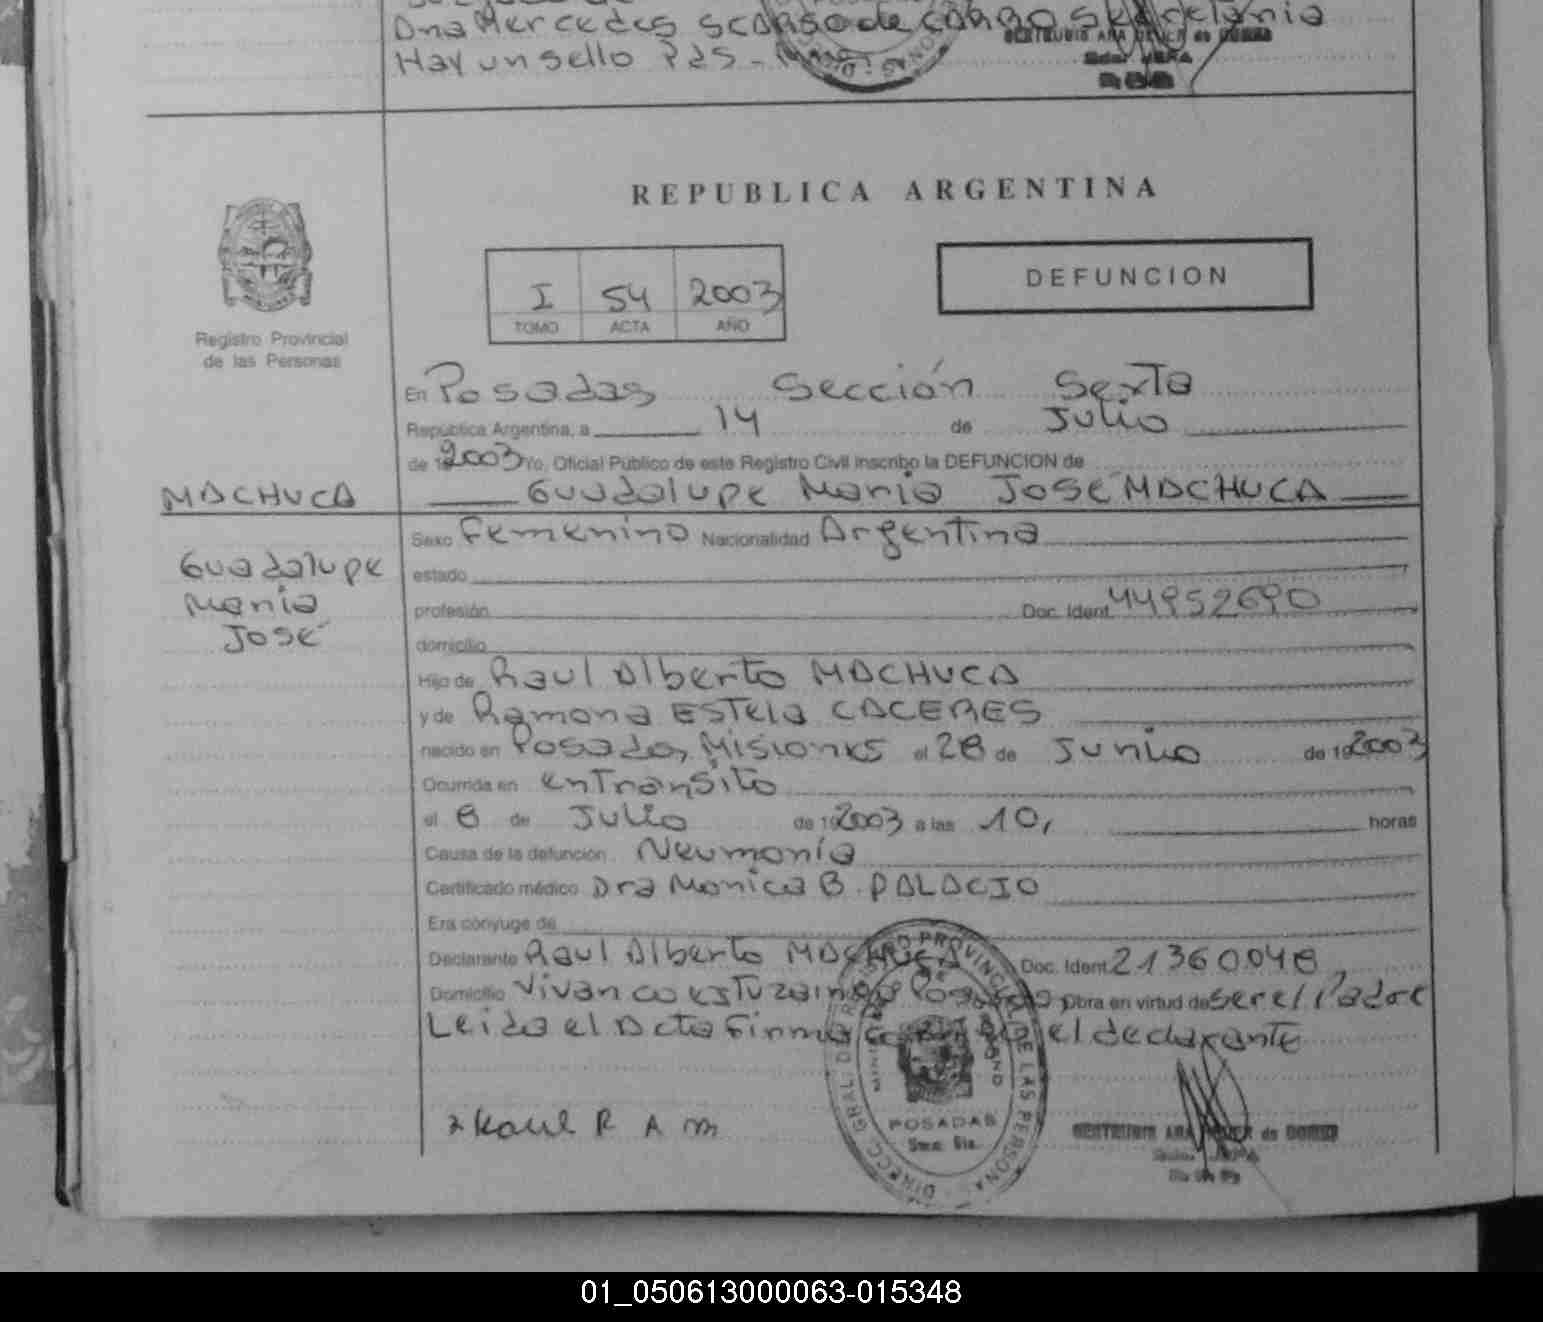 Dna Mercedes
Hay un sello Pds -
REPUBLICA ARGENTINA
I 54 2003
TOMO ACTA AÑO
DEFUNCION
Registro Provincial
de las Personas
En Posadas Sección Sexta
República Argentina, a 14 de Julio
de 19 2003 Yo, Oficial Público de este Registro Civil inscribo la DEFUNCION de
MACHUCA Guadalupe María José MACHUCA
Sexo Femenino Nacionalidad Argentina
Guadalupe
María
José
estado
profesión Doc. Ident. 44952690
domicilio
Hijo de Raul Alberto MACHUCA
y de Ramona ESTela CACERES
nacido en Posadas, Misiones el 28 de Junio de 19 2003
Ocurrida en en Transito
el 8 de Julio de 19 2003 a las 10, horas
Causa de la defunción Neumonía
Certificado médico Dra Monica B. PALACIO
Era cónyuge de
Declarante Raul Alberto MACHUCA Doc. Ident. 21360048
Domicilio Vivanco Obra en virtud de ser el Padre
Leida el Acta Firma el declarante
DIRECC. GRAL. DE REGISTRO PROVINCIAL DE LAS PERSONAS
POSADAS
Raul R A M
01_050613000063-015348